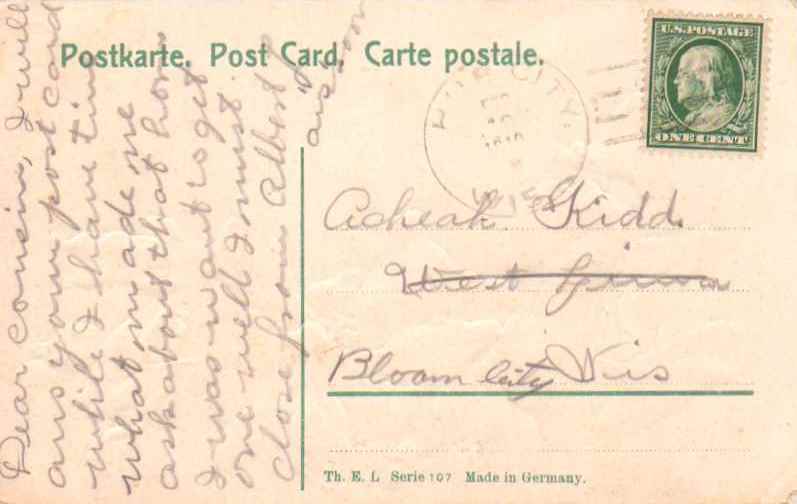 Postkarte. Post Card. Carte postale.
U.S. POSTAGE
ONE CENT
CITY.
WIS
Dear cousin, I will
ans your post card
while I have time
what made me
ask about that horn
I was want to get
one well I must
close from Albert
ans soon
Acheah Kidd
West Lima
Bloom City Wis
Th. E. L Serie 107 Made in Germany.